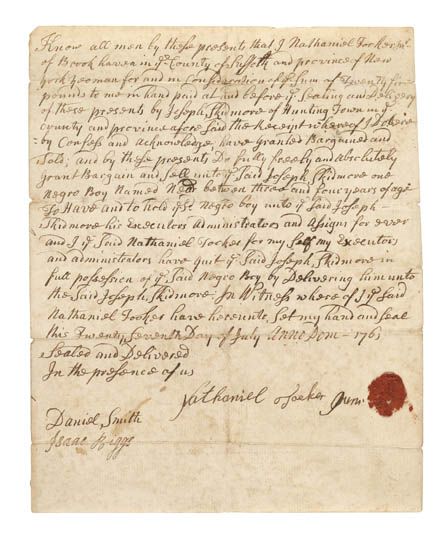 Know all men by these presents that I Nathaniel Tooker Junr
of Brook haven in ye County of Suffolk and province of New
york yeoman for and in Consideration of ye Sum of Twenty five
pounds to me in hand paid at and before ye Sealing and Delivery
of these presents by Joseph Skidmore of Hunting Town in ye
county and province afore Said the Receipt where of I do here
=by Confess and Acknowledge have granted Bargained and
Sold; and by these presents Do fully freely and absolutely
grant Bargain and sell unto ye Said Joseph Skidmore one
Negro Boy Named Ned between three and four years of age
To Have and to hold ye Sd Negro boy unto ye Said Joseph
Skidmore his Executors Administrators and Asigns for ever
and I ye Said Nathaniel Tooker for my Self my Executors
and administrators have quit ye Said Joseph Skidmore in
full possession of ye Said Negro Boy by Delivering him unto
the Said Joseph Skidmore In Witness where of I ye Said
Nathaniel Tooker have hereunto Set my hand and seal
this Twenty Seventh Day of July Anno Dom
Sealed and Delivered
In the presence of us
Nathaniel Tooker Junr
Daniel Smith
Isaac Biggs